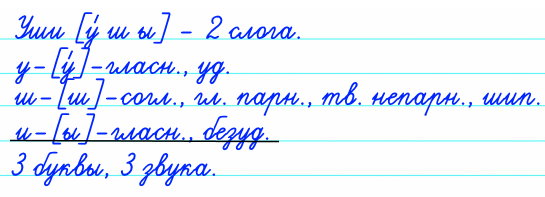 Уши [у́ ш ы] – 2 слога.
у–[у́]–гласн., уд.
ш–[ш]–согл., гл. парн., тв. непарн., шип.
и–[ы]–гласн., безуд.
3 буквы, 3 звука.